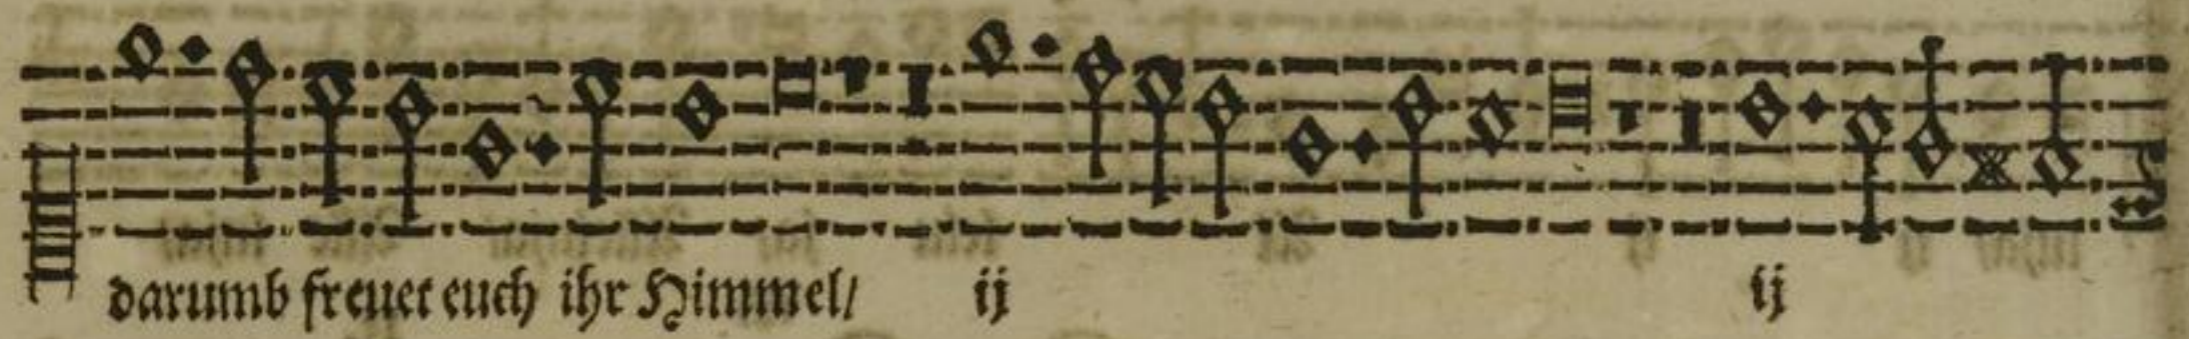 darumb freuet euch ihr Himmel/ ij ij